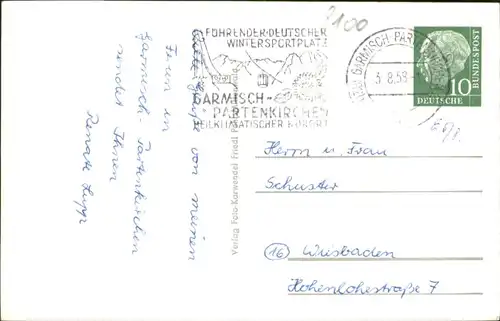 2100
FÜHRENDER DEUTSCHER
WINTERSPORTPLATZ
GARMISCH-
PARTENKIRCHEN
HEILKLIMATISCHER KURORT
GARMISCH-PARTENKIRCHEN
3.8.58
DEUTSCHE
BUNDESPOST
10
Viele Grüße von meinen
Ferien in
Garmisch-Partenkirchen
sendet Ihnen
Renate Lupp
Verlag Foto-Karwendel Friedl
Herrn u. Frau
Schuster
16 Wiesbaden
Hohenlohestraße 7